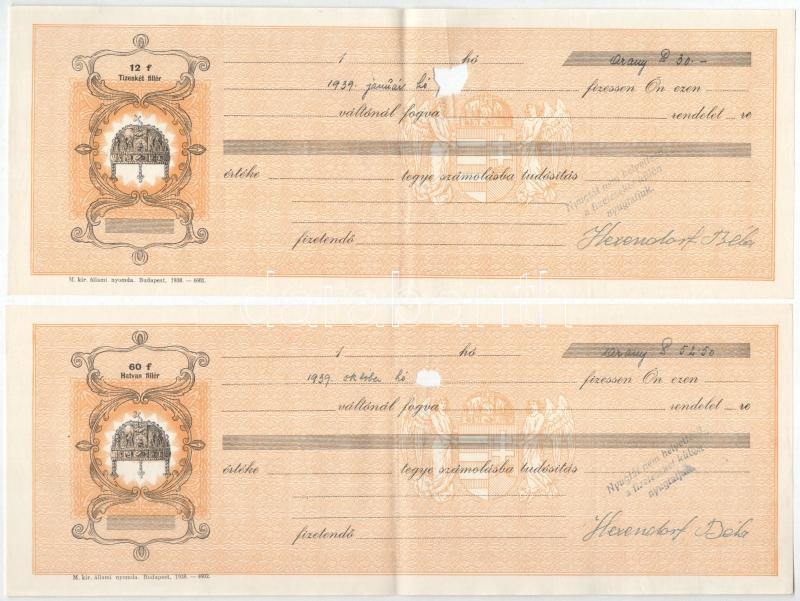 12 f
Tizenkét fillér
1 hó arany P 30.-
1939. január hó fizessen Ön ezen
váltónál fogva rendelet re
értéke tegye számolásba tudósítás
Nyugtát nem helyettesít,
a fizetéseket külön
nyugtatjuk.
fizetendő Hexendorf Béla
M. kir. állami nyomda. Budapest, 1938. — 4601.
darabanth
60 f
Hatvan fillér
1 hó arany P 52.50
1939. október hó fizessen Ön ezen
váltónál fogva rendelet re
értéke tegye számolásba tudósítás
Nyugtát nem helyettesít,
a fizetéseket külön
nyugtatjuk.
fizetendő Hexendorf Béla
M. kir. állami nyomda. Budapest, 1938. — 4602.